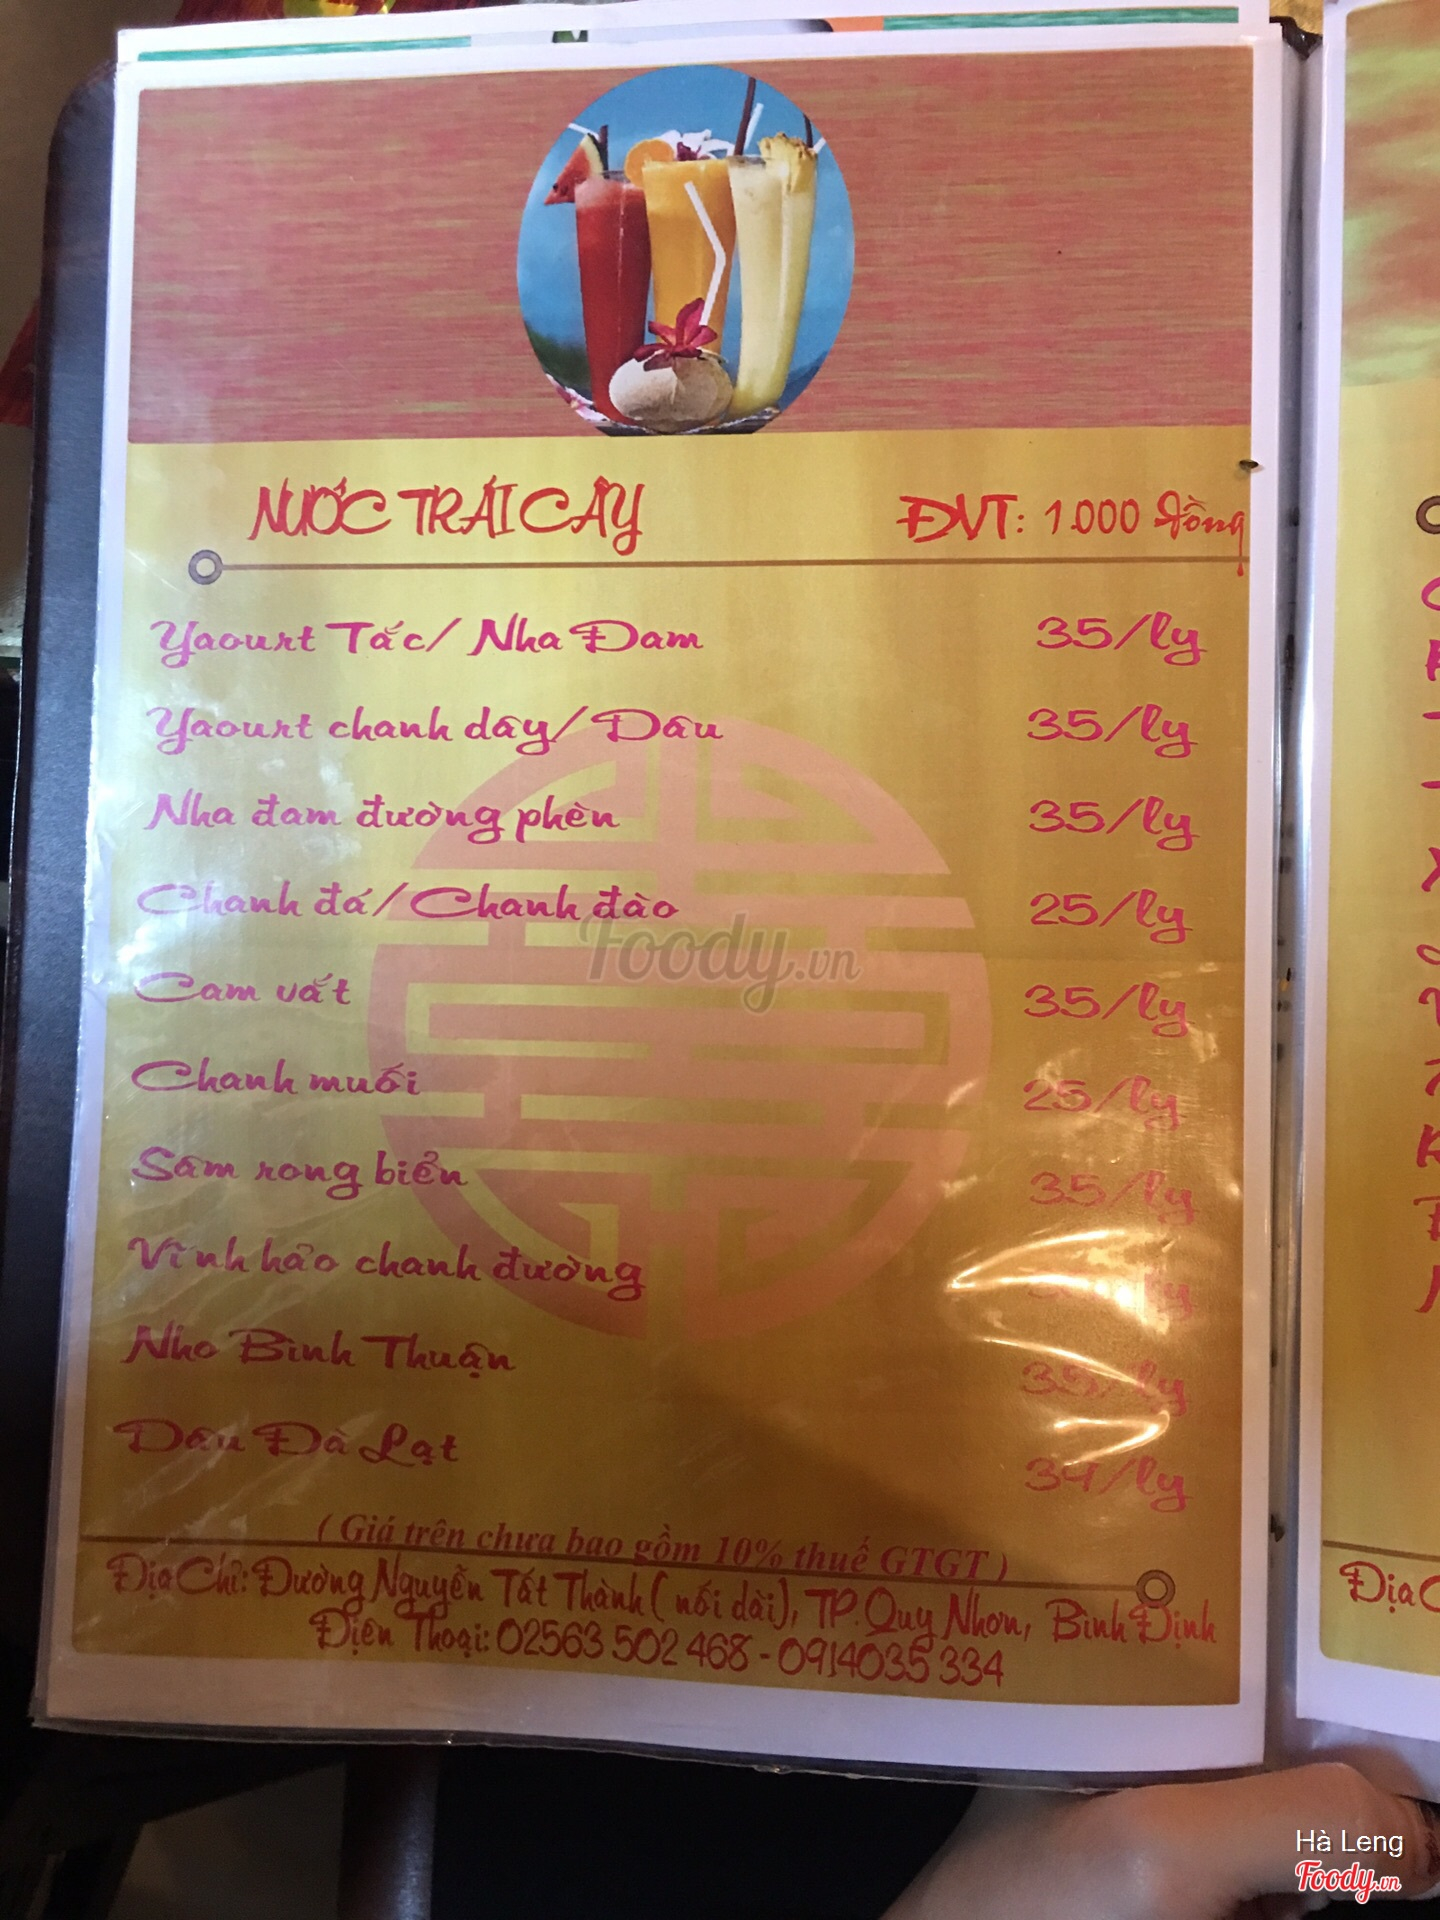 NƯỚC TRÁI CÂY ĐVT: 1.000 đồng
Yaourt Tắc/ Nha Đam 35/ly
Yaourt chanh dây/ Dâu 35/ly
Nha đam đường phèn 35/ly
Chanh đá/ Chanh đào 25/ly
Foody.vn
Cam vắt 35/ly
Chanh muối 25/ly
Sâm rong biển 35/ly
Vĩnh hảo chanh đường /ly
Nho Bình Thuận 35/ly
Dâu Đà Lạt /ly
( Giá trên chưa bao gồm 10% thuế GTGT )
Địa Chỉ: Đường Nguyễn Tất Thành ( nối dài), TP. Quy Nhơn, Bình Định
Điện Thoại: 02563 502 468 - 0914035 334
Địa
Hà Leng
Foody.vn